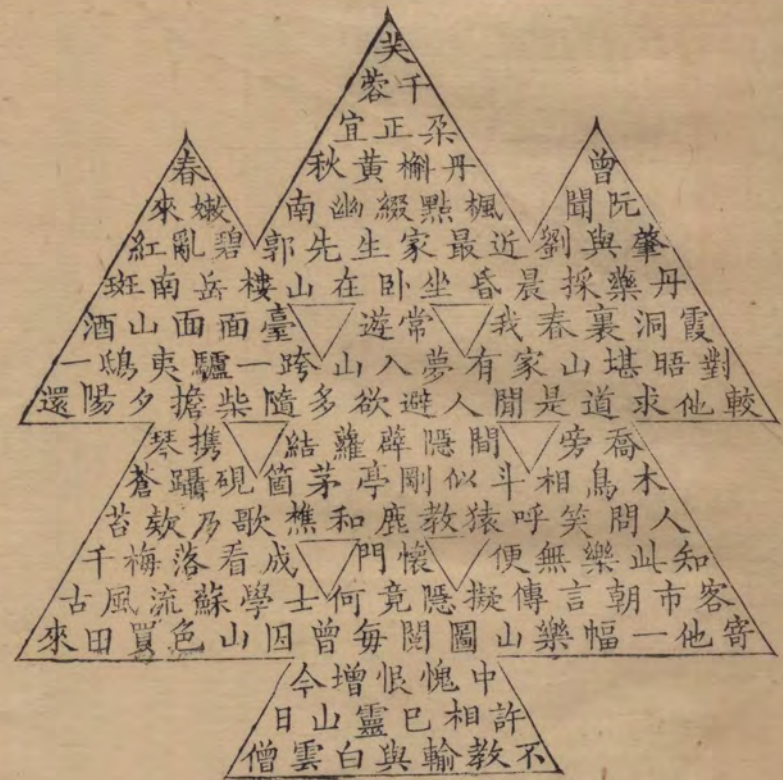 芙
蓉千
宜正朵
春 秋黃槲丹 曾
來嫩 南幽綴點楓 聞阮
紅亂碧郭先生家最近劉與肇
斑南岳樓山在卧坐昏晨採藥丹
酒山面面臺 遊常 我春裏洞霞
一鴟夷驢一跨山入夢有家山堪晤對
還陽夕擔柴隨多欲避人聞是道求他較
琴携 結蘿薜隱間 旁喬
蒼躡硯箇茅亭剛似斗相鳥木
苔欸乃歌樵和鹿教猿呼笑問人
千梅落看成 門懷 便無樂此知
古風流蘇學士何竟隱擬傳言朝市客
來田買色山囚曾每閱圖山樂幅一他寄
今增恨愧中
日山靈已相許
僧雲白與輸教不